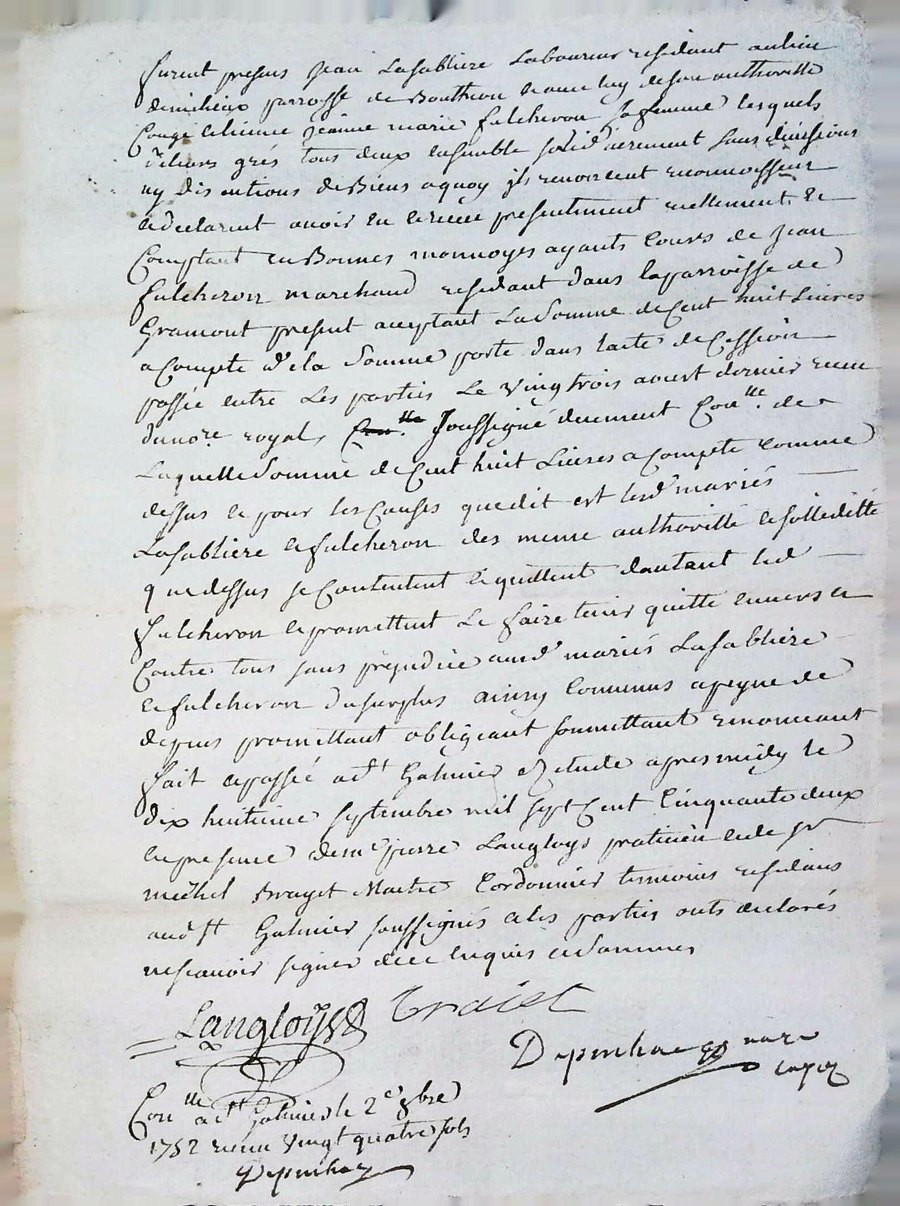 furent presens Jean Lasabliere Laboureur residant au lieu
de milieux parrosse de Bouthéon lequel de son authoritté
Congé et licence Jeanne marie fulcheron sa femme lesquels
de leurs grés tous deux ensemble solid.airement sans divisions
ny discutions de Biens a quoy ils renoncent reconnoissent
et declarent avoir eu et receu presentement reellement et
Comptant en Bonnes monnoyes ayants Cours de Jean
fulcheron marchand residant dans la parroisse de
Gramont present acceptant La Somme de Cent huit Livres
a Compte de la Somme porté dans l'acte de Cession
passée entre Les parties Le vingt trois aoust dernier receu
du no.re royal Soussigné deuement Con.lle de
Laquelle Somme de Cent huit Livres a Compte comme
dessus et pour les Causes que dit est lesd mariés
Lasabliere et fulcheron des meme authoritté et solleditté
que dessus se Contentent et quittent dautant led
fulcheron et promettent Le faire tenir quitte envers et
Contre tous sans prejudice aux d mariés Lasabliere
et fulcheron du surplus ainsy Convenus a peyne de
depens promettant obligeant soumettant renonceant
fait et passé a d.t Galmier Etude apres midy le
dix huitieme septembre mil sept Cent Cinquante deux
en presence de m.e pierre Langloys praticien et de s.r
michel Brayet Maitre Cordonnier temoins residans
aud S.t Galmier soussignés et les parties onts declarés
ne scavoir signer de ce enquis et sommés
Langloys Braiet
Depinhac no.re
royal
Con.lle a S.t Galmier le 2.e 8bre
1752 receu vingt quatre sols
Depinhac